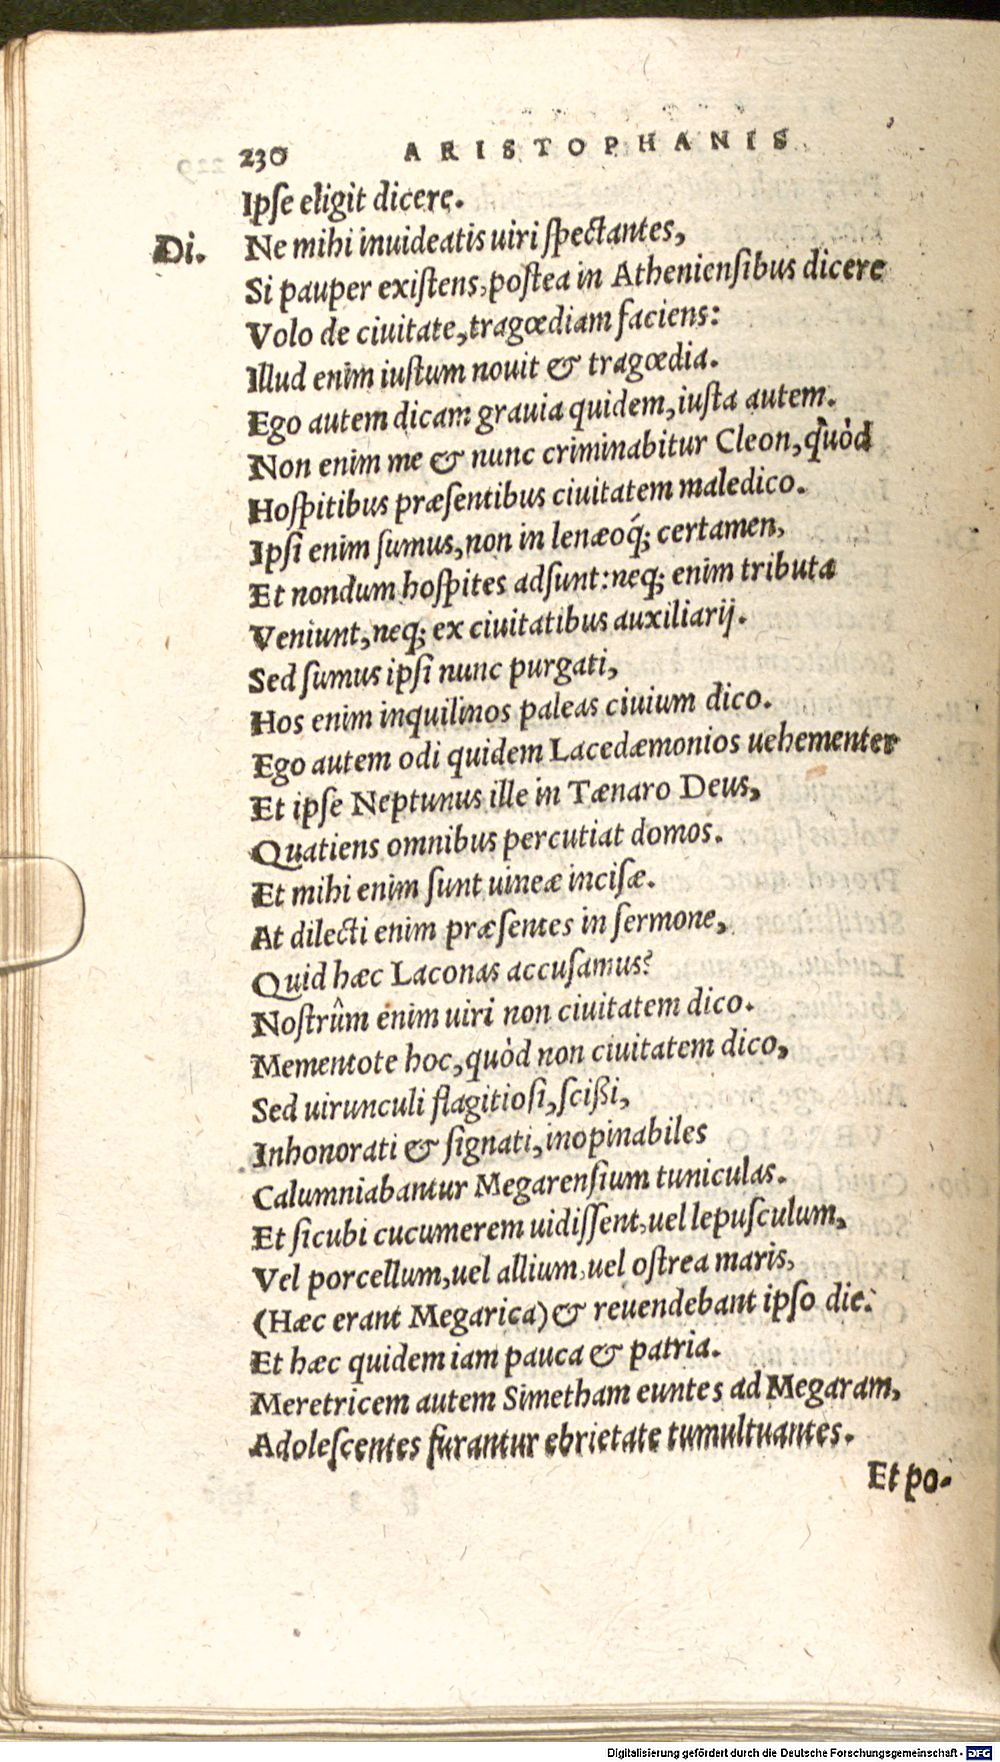 230 ARISTOPHANIS
Ipſe eligit dicere.
Di. Ne mihi inuideatis uiri ſpectantes,
Si pauper exiſtens, poſtea in Athenienſibus dicere
Volo de ciuitate, tragœdiam faciens:
Illud enim iuſtum nouit & tragœdia.
Ego autem dicam grauia quidem, iuſta autem.
Non enim me & nunc criminabitur Cleon, quòd
Hoſpitibus præſentibus ciuitatem maledico.
Ipſi enim ſumus, non in lenæoq́; certamen,
Et nondum hoſpites adſunt: neq; enim tributa
Veniunt, neq; ex ciuitatibus auxiliarij.
Sed ſumus ipſi nunc purgati,
Hos enim inquilinos paleas ciuium dico.
Ego autem odi quidem Lacedæmonios uehementer
Et ipſe Neptunus ille in Tænaro Deus,
Quatiens omnibus percutiat domos.
Et mihi enim ſunt uineæ inciſæ.
At dilecti enim præſentes in ſermone,
Quid hæc Laconas accuſamus?
Noſtrûm enim uiri non ciuitatem dico.
Mementote hoc, quòd non ciuitatem dico,
Sed uirunculi flagitioſi, ſcißi,
Inhonorati & ſignati, inopinabiles
Calumniabantur Megarenſium tuniculas.
Et ſicubi cucumerem uidiſſent, uel lepuſculum,
Vel porcellum, uel allium, uel oſtrea maris,
(Hæc erant Megarica) & reuendebant ipſo die:
Et hæc quidem iam pauca & patria.
Meretricem autem Simetham euntes ad Megaram,
Adoleſcentes furantur ebrietate tumultuantes.
Et po-
Digitalisierung gefördert durch die Deutsche Forschungsgemeinschaft - DFG